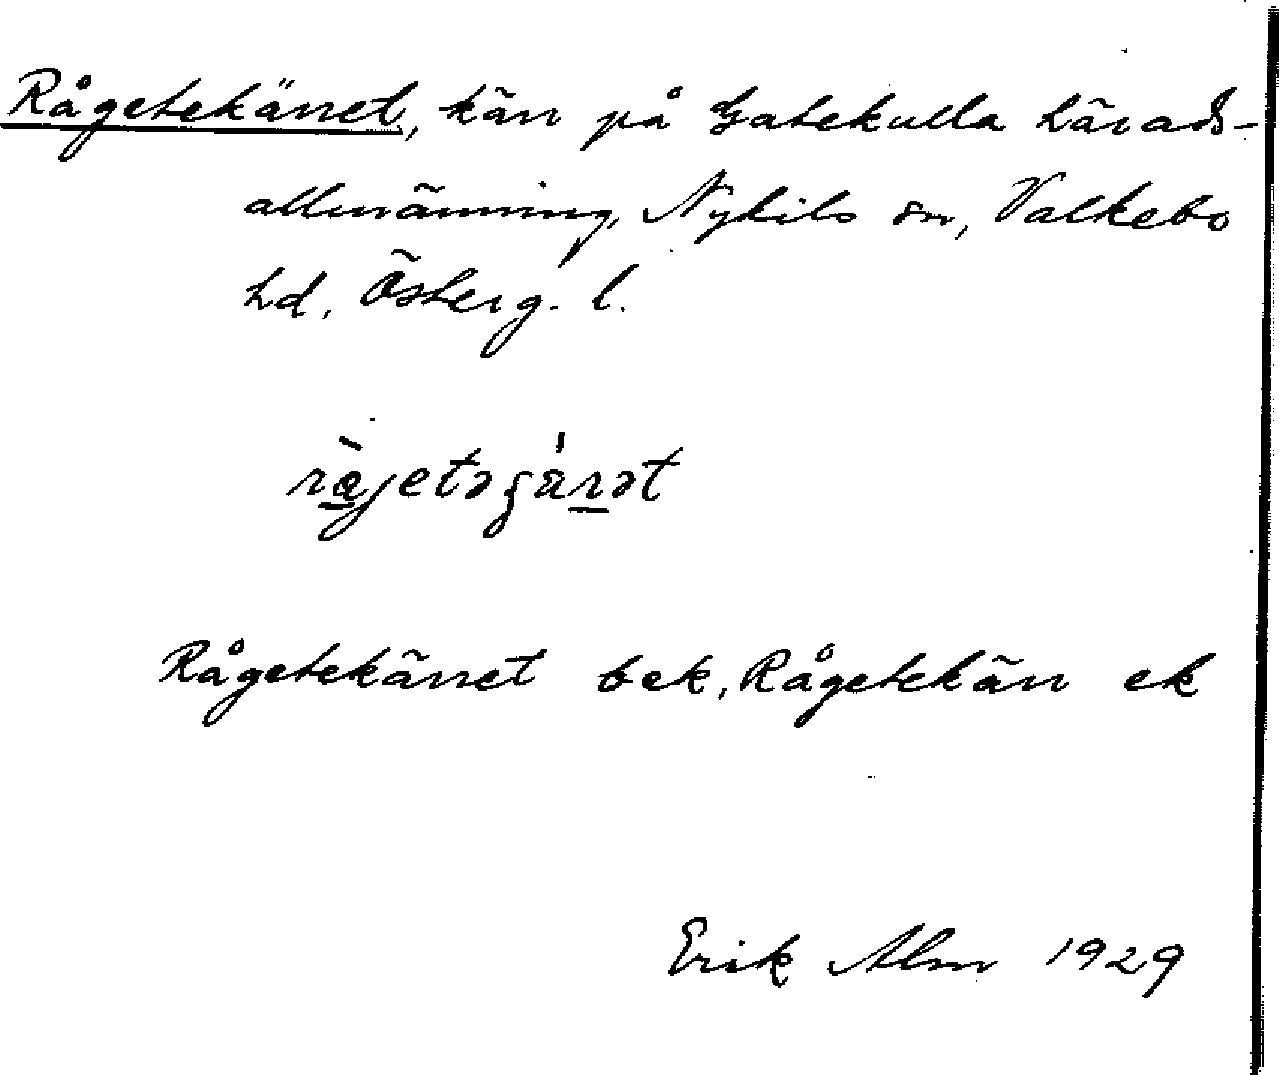 Rågetekärret, kärr på Gatekulla härads-
allmänning, Nykils sn, Valkebo
hd, Österg. l.
Rågetekärret bek, Rågetekärr ek
Erik Alm 1929